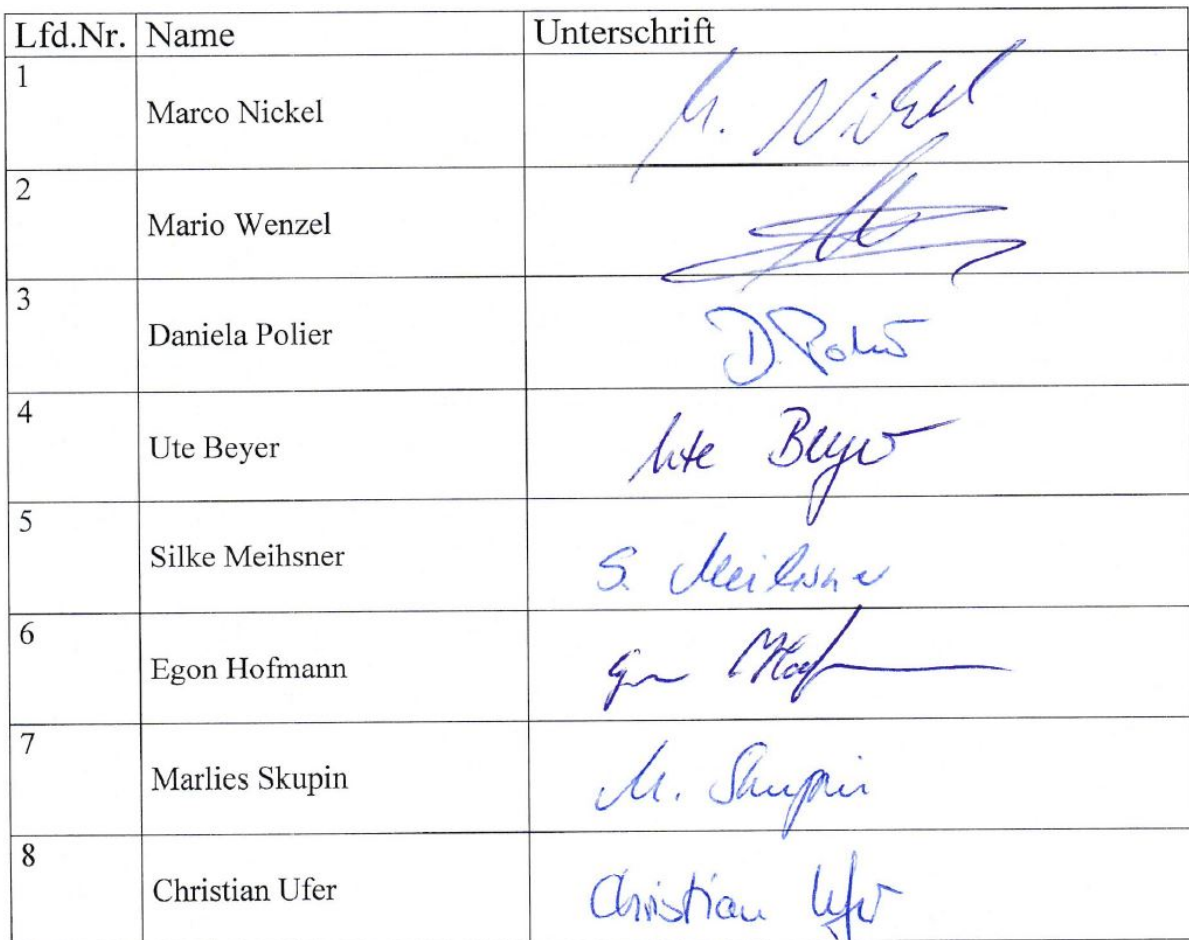 Lfd.Nr. Name Unterschrift
1
Marco Nickel M. Nickel
2
Mario Wenzel
3
Daniela Polier D. Polier
4
Ute Beyer Ute Beyer
5
Silke Meihsner S. Meihsner
6
Egon Hofmann Egon Hofmann
7
Marlies Skupin M. Skupin
8
Christian Ufer Christian Ufer